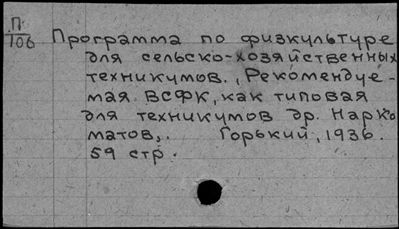 П
106
Программа по физкультуре
для сельско-хозяйственных
техникумов., Рекомендуе-
мая ВСФК, как типовая
для техникумов др. Нарко
матов,. Горький, 1936.
59 стр.